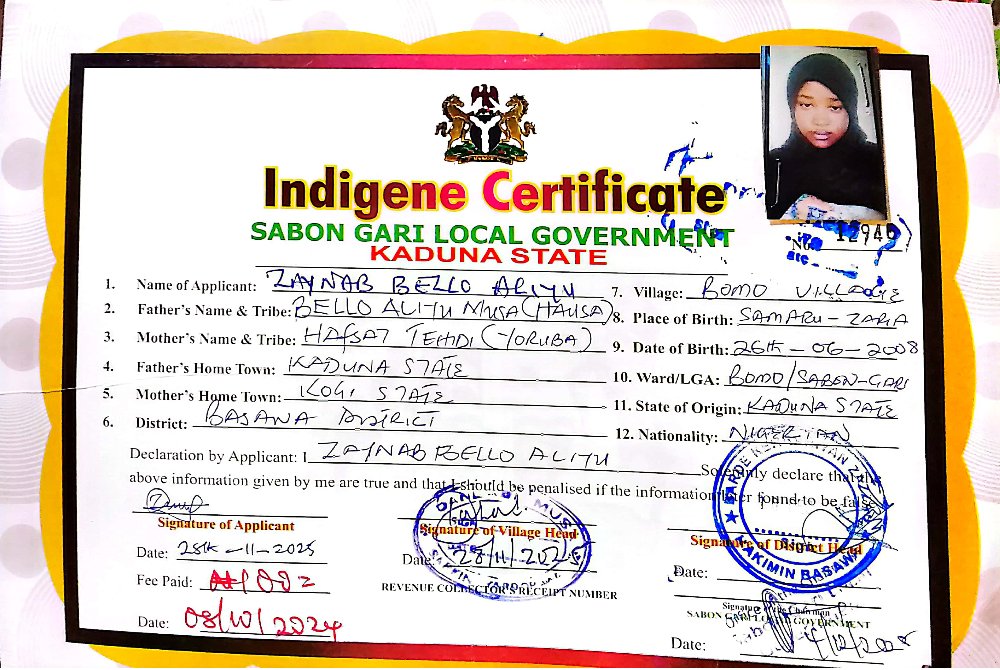 Indigene Certificate
SABON GARI LOCAL GOVERNMENT
KADUNA STATE
No. 12946
1. Name of Applicant: ZAYNAB BELLO ALIYU
2. Father's Name & Tribe: BELLO ALIYU MUSA (HAUSA)
3. Mother's Name & Tribe: HAFSAT TEHIDI (YORUBA)
4. Father's Home Town: KADUNA STATE
5. Mother's Home Town: KOGI STATE
6. District: BASAWA DISTRICT
7. Village: BOMO VILLAGE
8. Place of Birth: SAMARU - ZARIA
9. Date of Birth: 26th - 06 - 2008
10. Ward/LGA: BOMO/SABON-GARI
11. State of Origin: KADUNA STATE
12. Nationality: NIGERIAN
Declaration by Applicant: I ZAYNAB BELLO ALIYU Solemnly declare that the
above information given by me are true and that I should be penalised if the information later found to be false
Signature of Applicant
Date: 28th - 11 - 2025
Fee Paid:
Date: 08/10/2024
Signature of Village Head
Date: 28/11/2025
REVENUE COLLECTOR'S RECEIPT NUMBER
HAKIMIN BASAWA
Signature of District Head
Date:
Signature of the Chairman
SABON GARI LOCAL GOVERNMENT
Date: